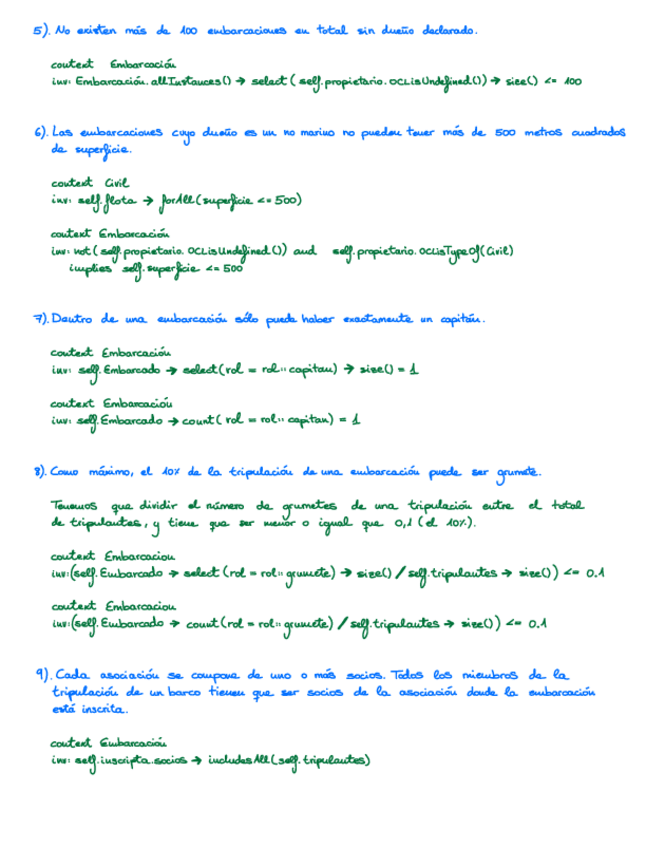 5). No existen más de 100 embarcaciones en total sin dueño declarado.
context Embarcación
inv: Embarcación.allInstances() → select ( self.propietario.OCLisUndefined()) → size() <= 100
6). Las embarcaciones cuyo dueño es un no marino no pueden tener más de 500 metros cuadrados
de superficie.
context Civil
inv: self.flota → forAll(superficie <= 500)
context Embarcación
inv: not ( self.propietario.OCLisUndefined()) and self.propietario.OCLisTypeOf(Civil)
implies self.superficie <= 500
7). Dentro de una embarcación sólo puede haber exactamente un capitán.
context Embarcación
inv: self.Embarcado → select(rol = rol::capitan) → size() = 1
context Embarcación
inv: self.Embarcado → count( rol = rol::capitan) = 1
8). Como máximo, el 10% de la tripulación de una embarcación puede ser grumete.
Tenemos que dividir el número de grumetes de una tripulación entre el total
de tripulantes, y tiene que ser menor o igual que 0,1 (el 10%).
context Embarcacion
inv:(self.Embarcado → select (rol = rol::grumete) → size() / self.tripulantes → size()) <= 0.1
context Embarcacion
inv:(self.Embarcado → count(rol = rol::grumete) / self.tripulantes → size()) <= 0.1
9). Cada asociación se compone de uno o más socios. Todos los miembros de la
tripulación de un barco tienen que ser socios de la asociación donde la embarcación
está inscrita.
context Embarcación
inv: self.inscripta.socios → includesAll(self.tripulantes)